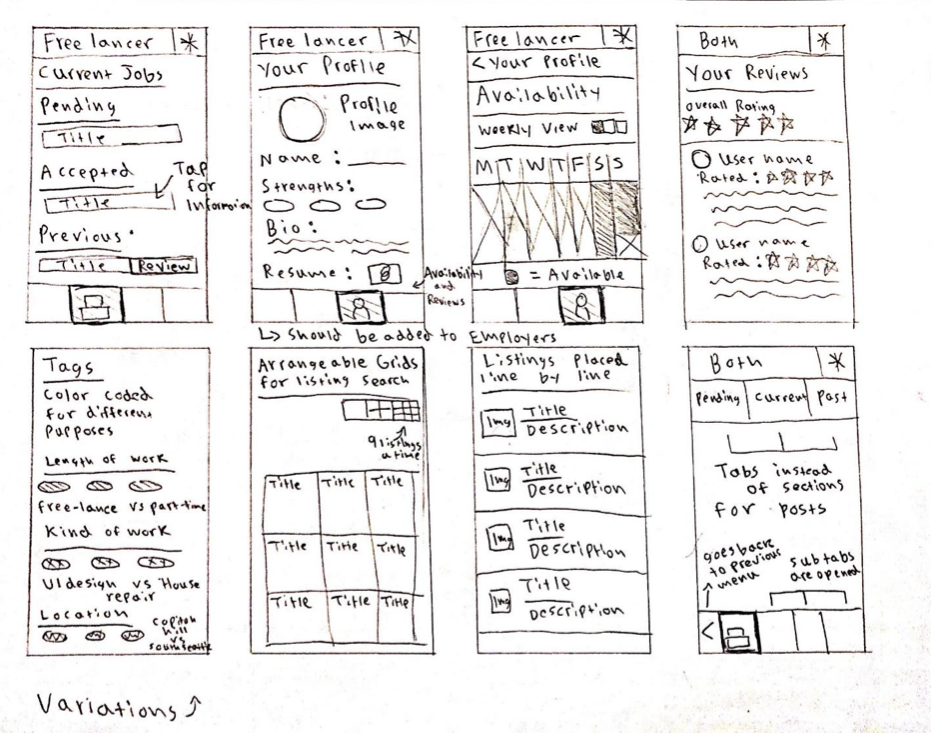 Free lancer
Current Jobs
Pending
Title
Accepted
Title
Tap
for
Information
Previous
Title Review
Free lancer
Your Profile
Profile
Image
Name:
Strengths:
Bio:
Resume:
Availability
and
Reviews
↳ Should be added to Employers
Free lancer
< Your Profile
Availability
Weekly View
M T W T F S S
= Available
Both
Your Reviews
Overall Rating
User name
Rated:
User name
Rated:
Tags
Color coded
for different
Purposes
Length of work
Free-lance vs part-time
Kind of work
UI design vs House
repair
Location
Capitol
hill
vs
South seattle
Arrangeable Grids
for listing search
9 listings
a time
Title Title Title
Title Title Title
Title Title Title
Listings Placed
line by line
Img
Title
Description
Img
Title
Description
Img
Title
Description
Img
Title
Description
Both
Pending Current Past
Tabs instead
of sections
for posts
goes back
to previous
menu
sub tabs
are opened
<
Variations